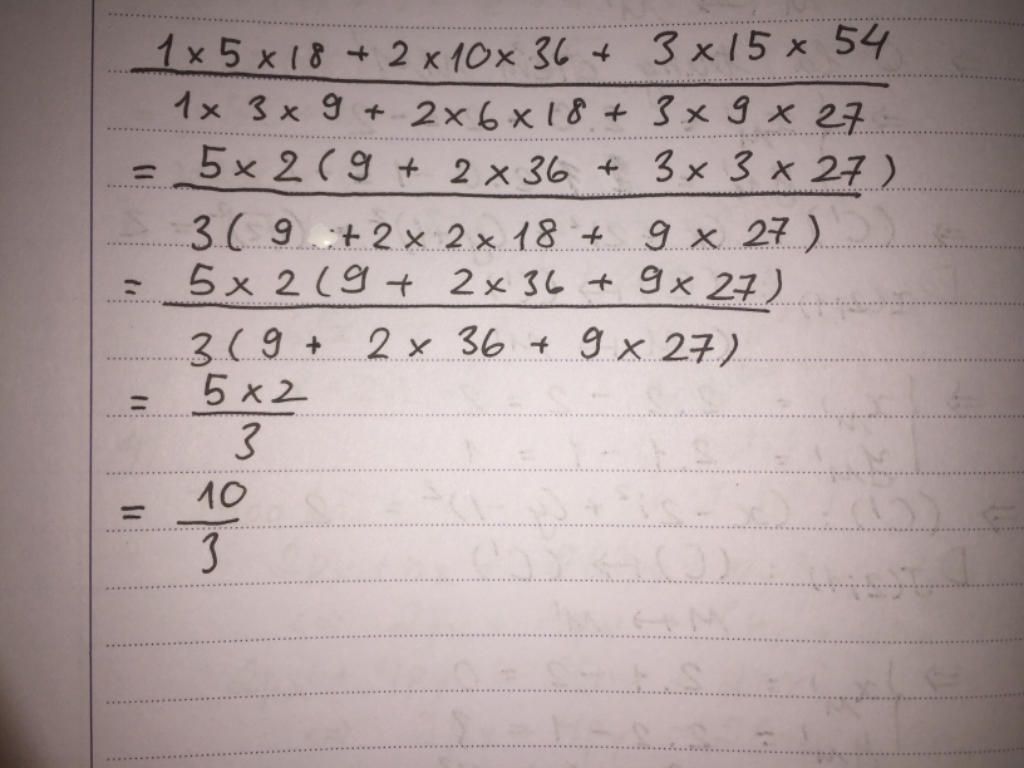 1 × 5 × 18 + 2 × 10 × 36 + 3 × 15 × 54
1 × 3 × 9 + 2 × 6 × 18 + 3 × 9 × 27
= 5 × 2 ( 9 + 2 × 36 + 3 × 3 × 27 )
3 ( 9 + 2 × 2 × 18 + 9 × 27 )
= 5 × 2 ( 9 + 2 × 36 + 9 × 27 )
3 ( 9 + 2 × 36 + 9 × 27 )
= 5 × 2
3
= 10
3